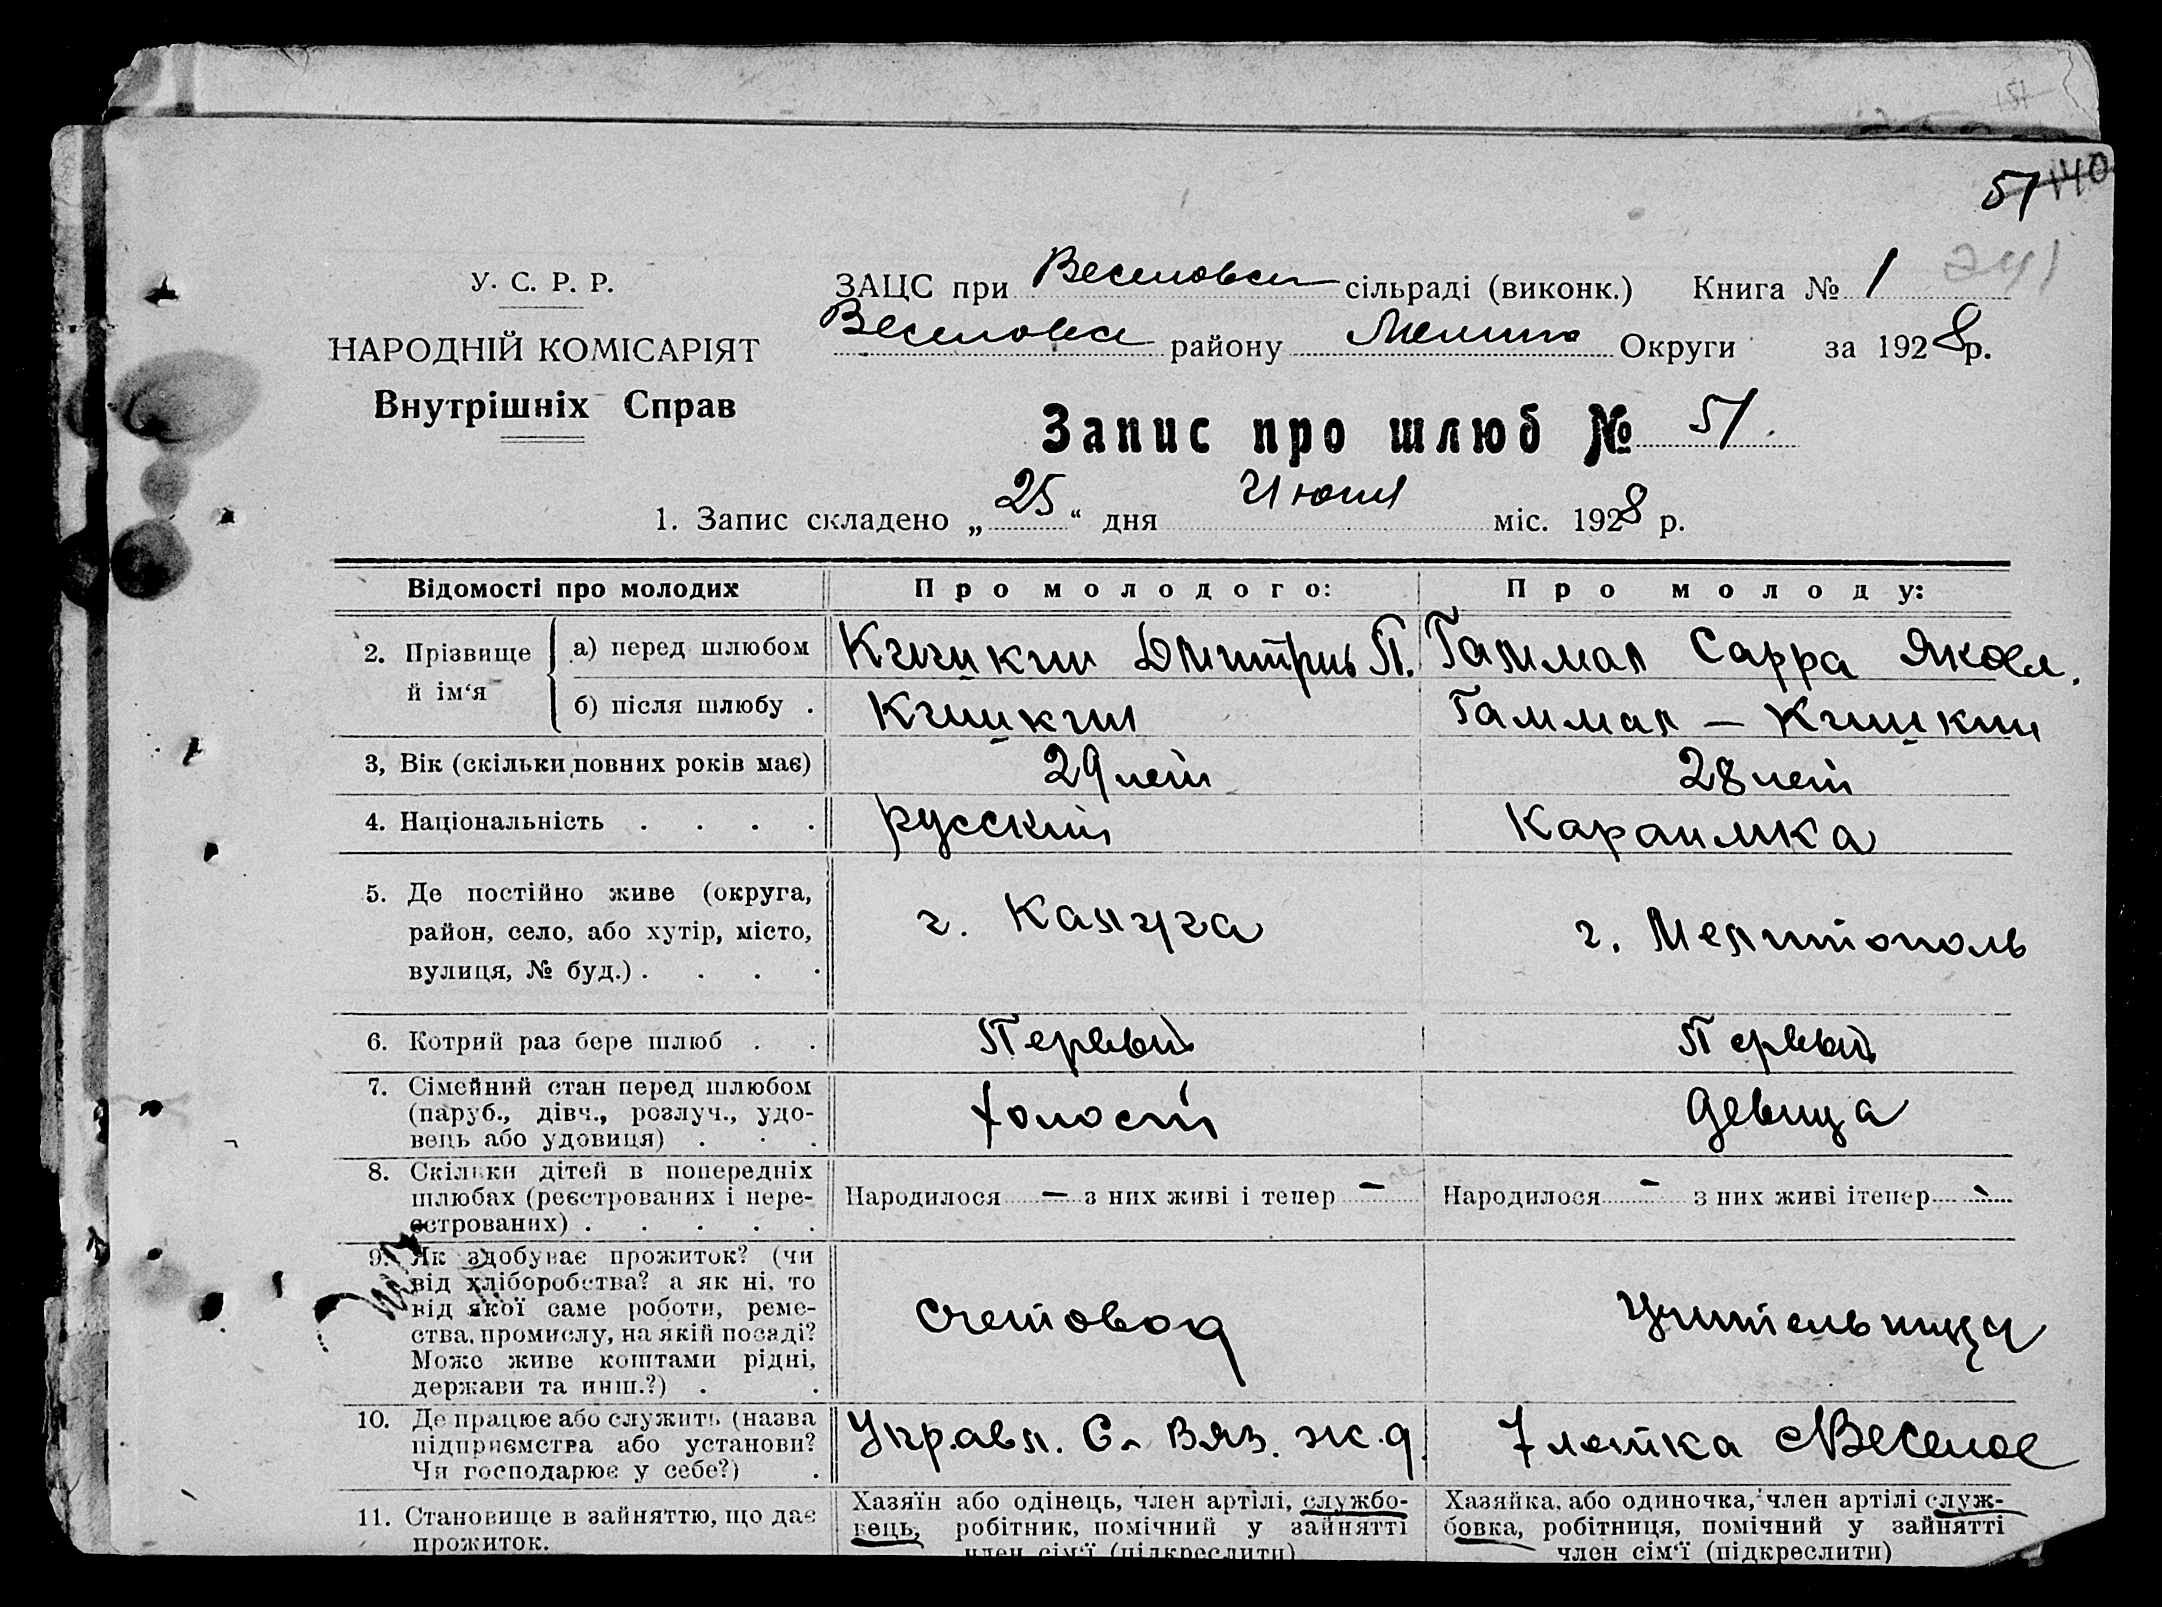 51 140
241
У. С. Р. Р.
НАРОДНІЙ КОМІСАРІЯТ
Внутрішніх Справ
ЗАЦС при Веселовск сільраді (виконк.) Книга № 1
Веселовск району Мелит Округи за 1928 р.
Запис про шлюб № 51.
1. Запис складено „25“ дня Июня міс. 1928 р.
Відомості про молодих Про молодого: Про молоду:
2. Прізвище й ім‘я
а) перед шлюбом Дмитрий П. Гаммал Сарра Яковл.
б) після шлюбу . Гаммал —
3, Вік (скільки повних років має) 29 лет 28 лет
4. Національність . . . . русский Караимка
5. Де постійно живе (округа,
район, село, або хутір, місто,
вулиця, № буд.) . . . .
г. Калуга г. Мелитополь
6. Котрий раз бере шлюб . . Первый Первый
7. Сімейний стан перед шлюбом
(паруб., дівч., розлуч., удо-
вець або удовиця) . . .
Холост Девица
8. Скільки дітей в попередніх
шлюбах (реєстрованих і нере-
єстрованих) . . . . .
Народилося — з них живі і тепер — Народилося - з них живі ітепер -
9. Як здобуває прожиток? (чи
від хліборобства? а як ні, то
від якої саме роботи, реме-
ства, промислу, на якій посаді?
Може живе коштами рідні,
держави та инш.?) . .
Счетовод Учительница
10. Де працює або служить (назва
підприємства або установи?
Чи господарює у себе?) .
Управл. С. Вяз. ж. д. 7 летка с Веселое
11. Становище в зайняттю, що дає
прожиток.
Хазяїн або одінець, член артілі, службо-
вець, робітник, помічний у зайнятті
член сім‘ї (підкреслити)
Хазяйка, або одиночка, член артілі служ-
бовка, робітниця, помічний у зайнятті
член сім‘ї (підкреслити)